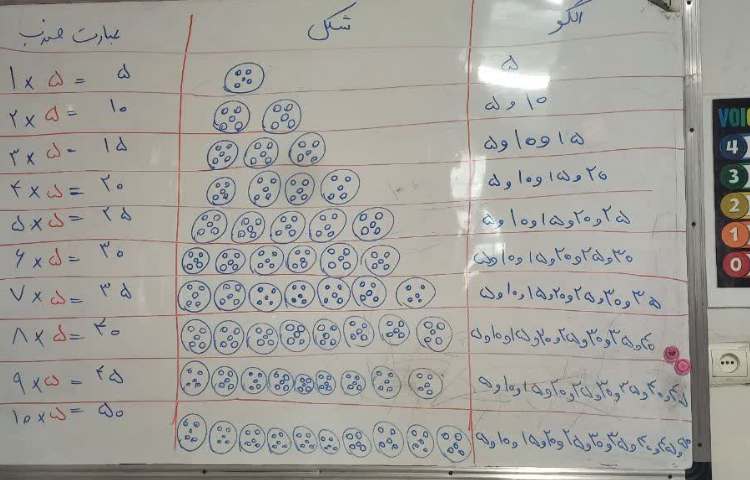 الگو شکل عبارت ضرب
۵ ۱ × ۵ = ۵
۵ و ۱۰ ۲ × ۵ = ۱۰
۵ و ۱۰ و ۱۵ ۳ × ۵ = ۱۵
۵ و ۱۰ و ۱۵ و ۲۰ ۴ × ۵ = ۲۰
۵ و ۱۰ و ۱۵ و ۲۰ و ۲۵ ۵ × ۵ = ۲۵
۵ و ۱۰ و ۱۵ و ۲۰ و ۲۵ و ۳۰ ۶ × ۵ = ۳۰
۵ و ۱۰ و ۱۵ و ۲۰ و ۲۵ و ۳۰ و ۳۵ ۷ × ۵ = ۳۵
۵ و ۱۰ و ۱۵ و ۲۰ و ۲۵ و ۳۰ و ۳۵ و ۴۰ ۸ × ۵ = ۴۰
۵ و ۱۰ و ۱۵ و ۲۰ و ۲۵ و ۳۰ و ۳۵ و ۴۰ و ۴۵ ۹ × ۵ = ۴۵
۵ و ۱۰ و ۱۵ و ۲۰ و ۲۵ و ۳۰ و ۳۵ و ۴۰ و ۴۵ و ۵۰ ۱۰ × ۵ = ۵۰
4
3
2
1
0